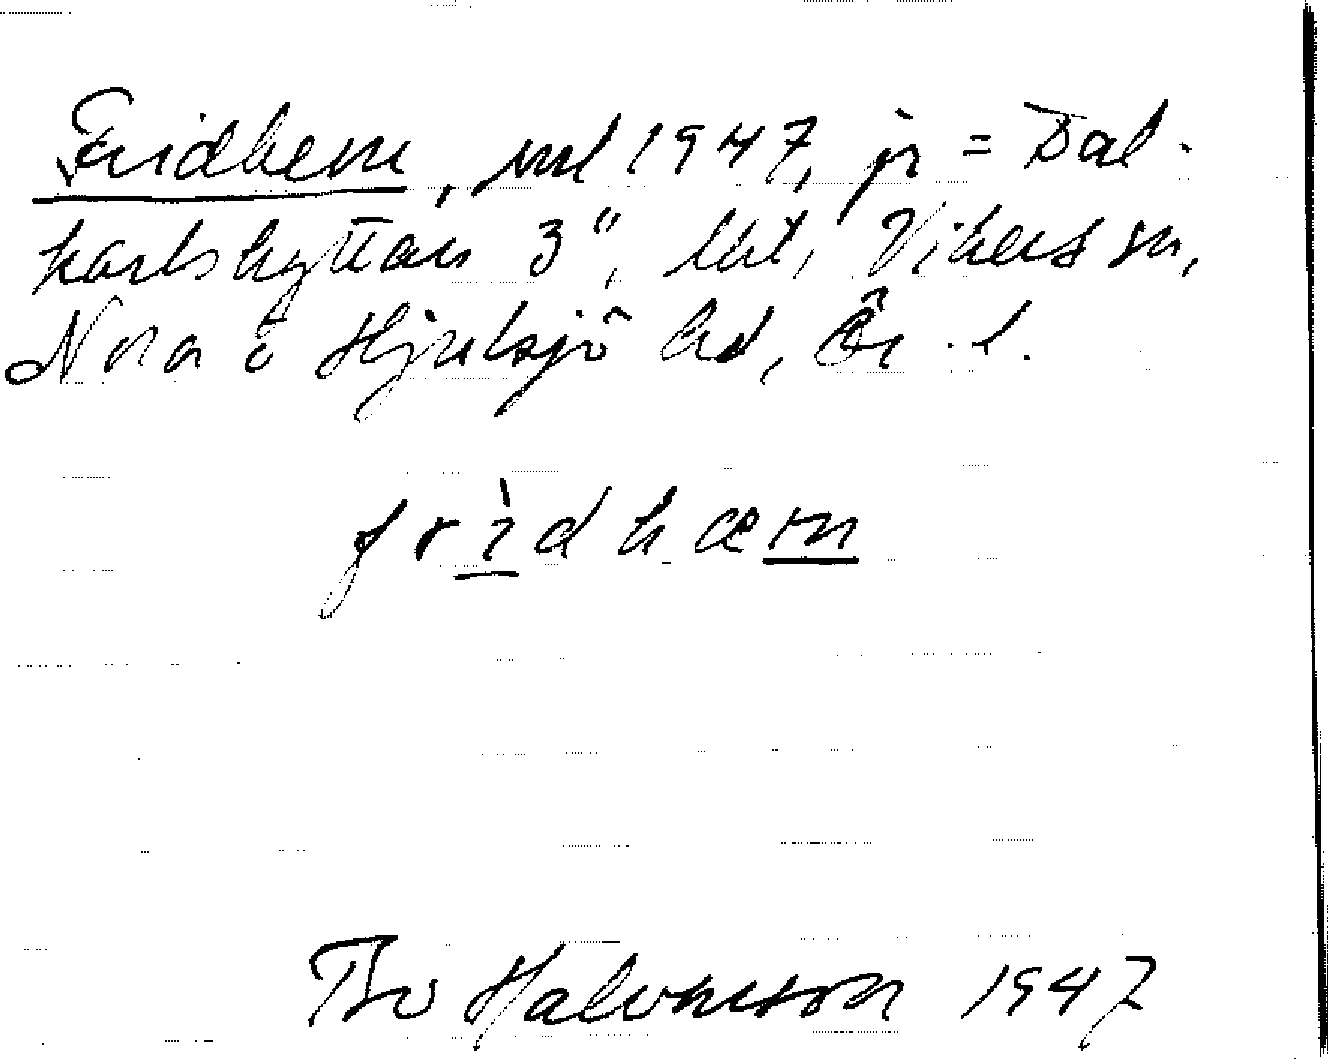 Fridhem, vid 1947, jr = Dal-
karlshyttan 3", lht, Vikers sn,
Nora o Hjulsjö hd, Ör. l.
frìdhæm
Bo Halvarsson 1947